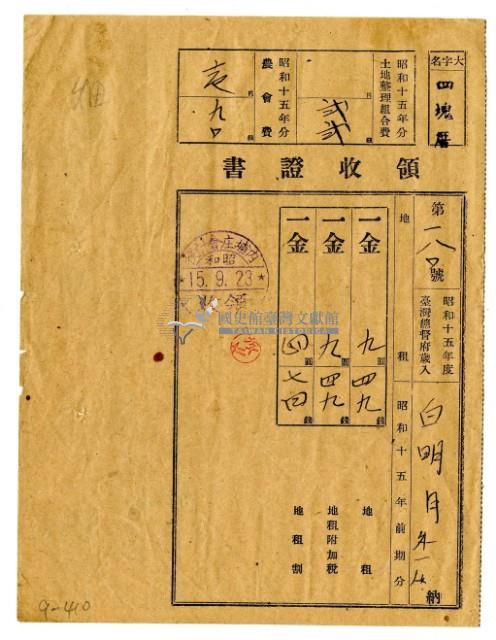 大字名
四塊厝
昭和十五年分
土地整理組合費
弐弐
昭和十五年分
農會費
九〇
領收證書
第一八〇號
昭和十五年度
臺灣總督府歲入
白明月
納
地租
昭和十五年前期分
一金 九圓四九錢 地租
一金 九圓四九錢 地租附加稅
一金 四圓七四錢 地租割
內埔庄會計
昭和
15.9.23
領收
國史館臺灣文獻館
TAIWAN HISTORICA
9-410